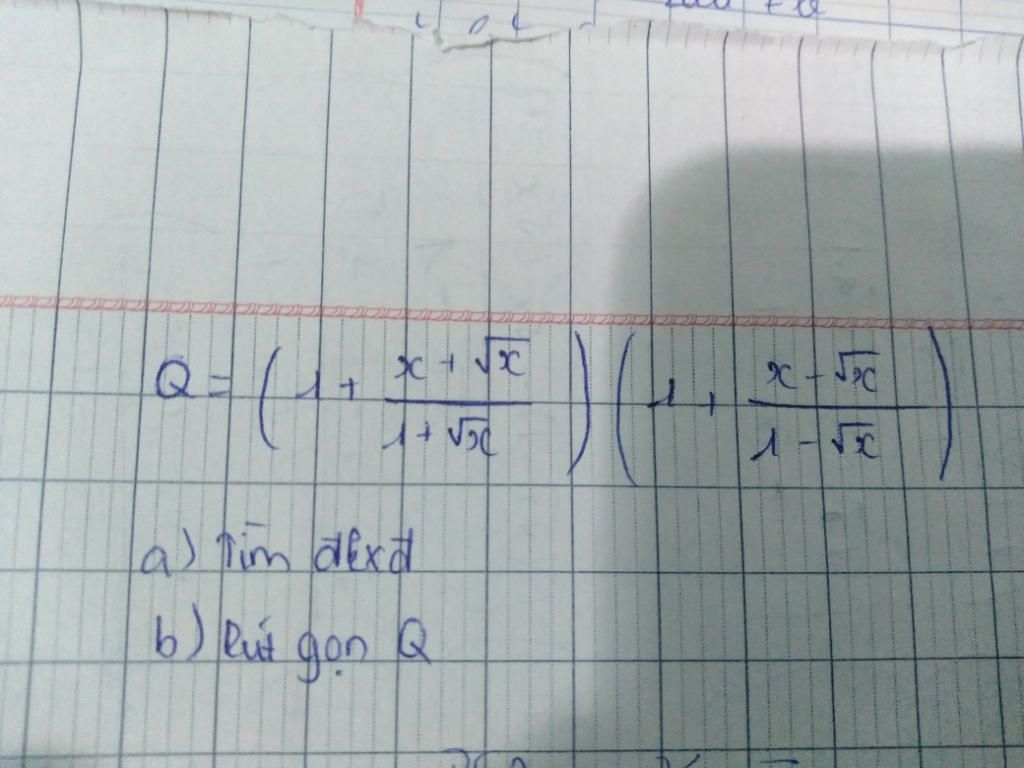 Q = ( 1 + \frac{x + \sqrt{x}}{1 + \sqrt{x}} ) ( 1 + \frac{x - \sqrt{x}}{1 - \sqrt{x}} )
a) Tìm đkxđ
b) Rút gọn Q